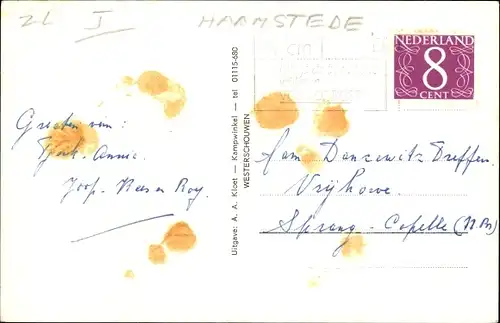 ZL I HAAMSTEDE
NEDERLAND
8
CENT
Groeten van:
Tjerk. Annie.
Joop. Kees en Roy.
Uitgave: A. A. Kloet — Kampwinkel — tel 01115-680
WESTERSCHOUWEN
Fam Danzewitz Treffen.
Vrijhoeve
Sprang-Capelle (N.Br)